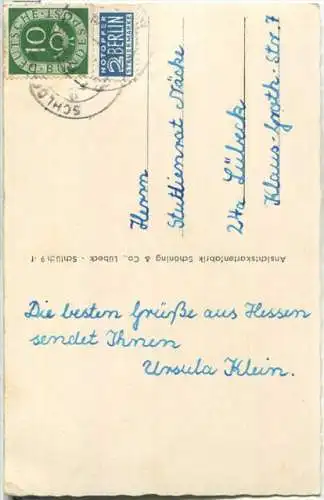 DEUTSCHE BUNDESPOST
10
NOTOPFER
2 BERLIN
STEUERMARKE
Herrn
Studienrat Näcke
24a Lübeck
Klaus-Groth-Str. 7
Ansichtskartenfabrik Schöning & Co., Lübeck - Schlüch 9
Die besten Grüße aus Hessen
sendet Ihnen
Ursula Klein.